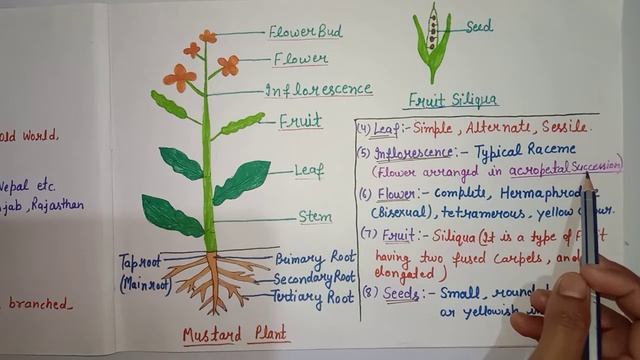 old World,
Nepal etc.
jab, Rajasthan
branched_
Flower Bud
Flower
Inflorescence
Fruit
Leaf
Stem
Taproot
(Mainroot)
Primary Root
Secondary Root
Tertiary Root
Mustard Plant
Seed
Fruit Siliqua
(4) Leaf:- Simple, Alternate, Sessile.
(5) Inflorescence:- Typical Raceme
(Flower arranged in acropetal Succession)
(6) Flower:- Complete, Hermaphrod
(Bisexual), tetramerous, yellow our.
(7) Fruit:- Siliqua (It is a type of Fruit
having two fused carpels, and
elongated)
(8) Seeds:- Small, round
or yellowish in